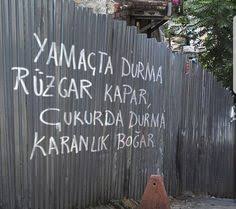 YAMAÇTA DURMA
RÜZGAR KAPAR,
ÇUKURDA DURMA
KARANLIK BOĞAR